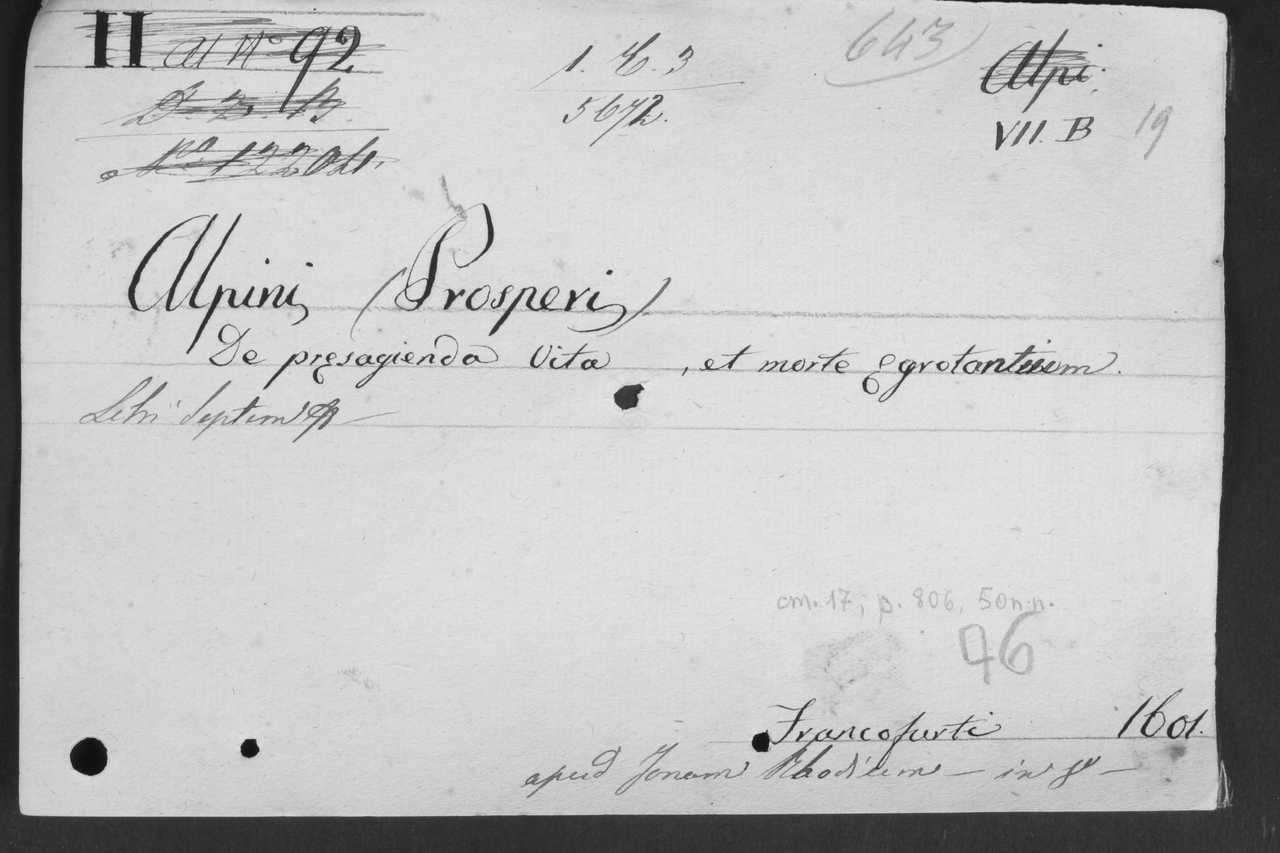 II al N.º 92
1. C. 3
643
Alpi.
5672.
VII. B 19
Nº 12204.
Alpini, (Prosperi)
De pręsagienda Vita, et morte ęgrotantium.
Libri Septem
cm. 17; p. 806, 50 n.n.
46
Francofurti 1601.
apud Jonam Rhodium — in 8º —